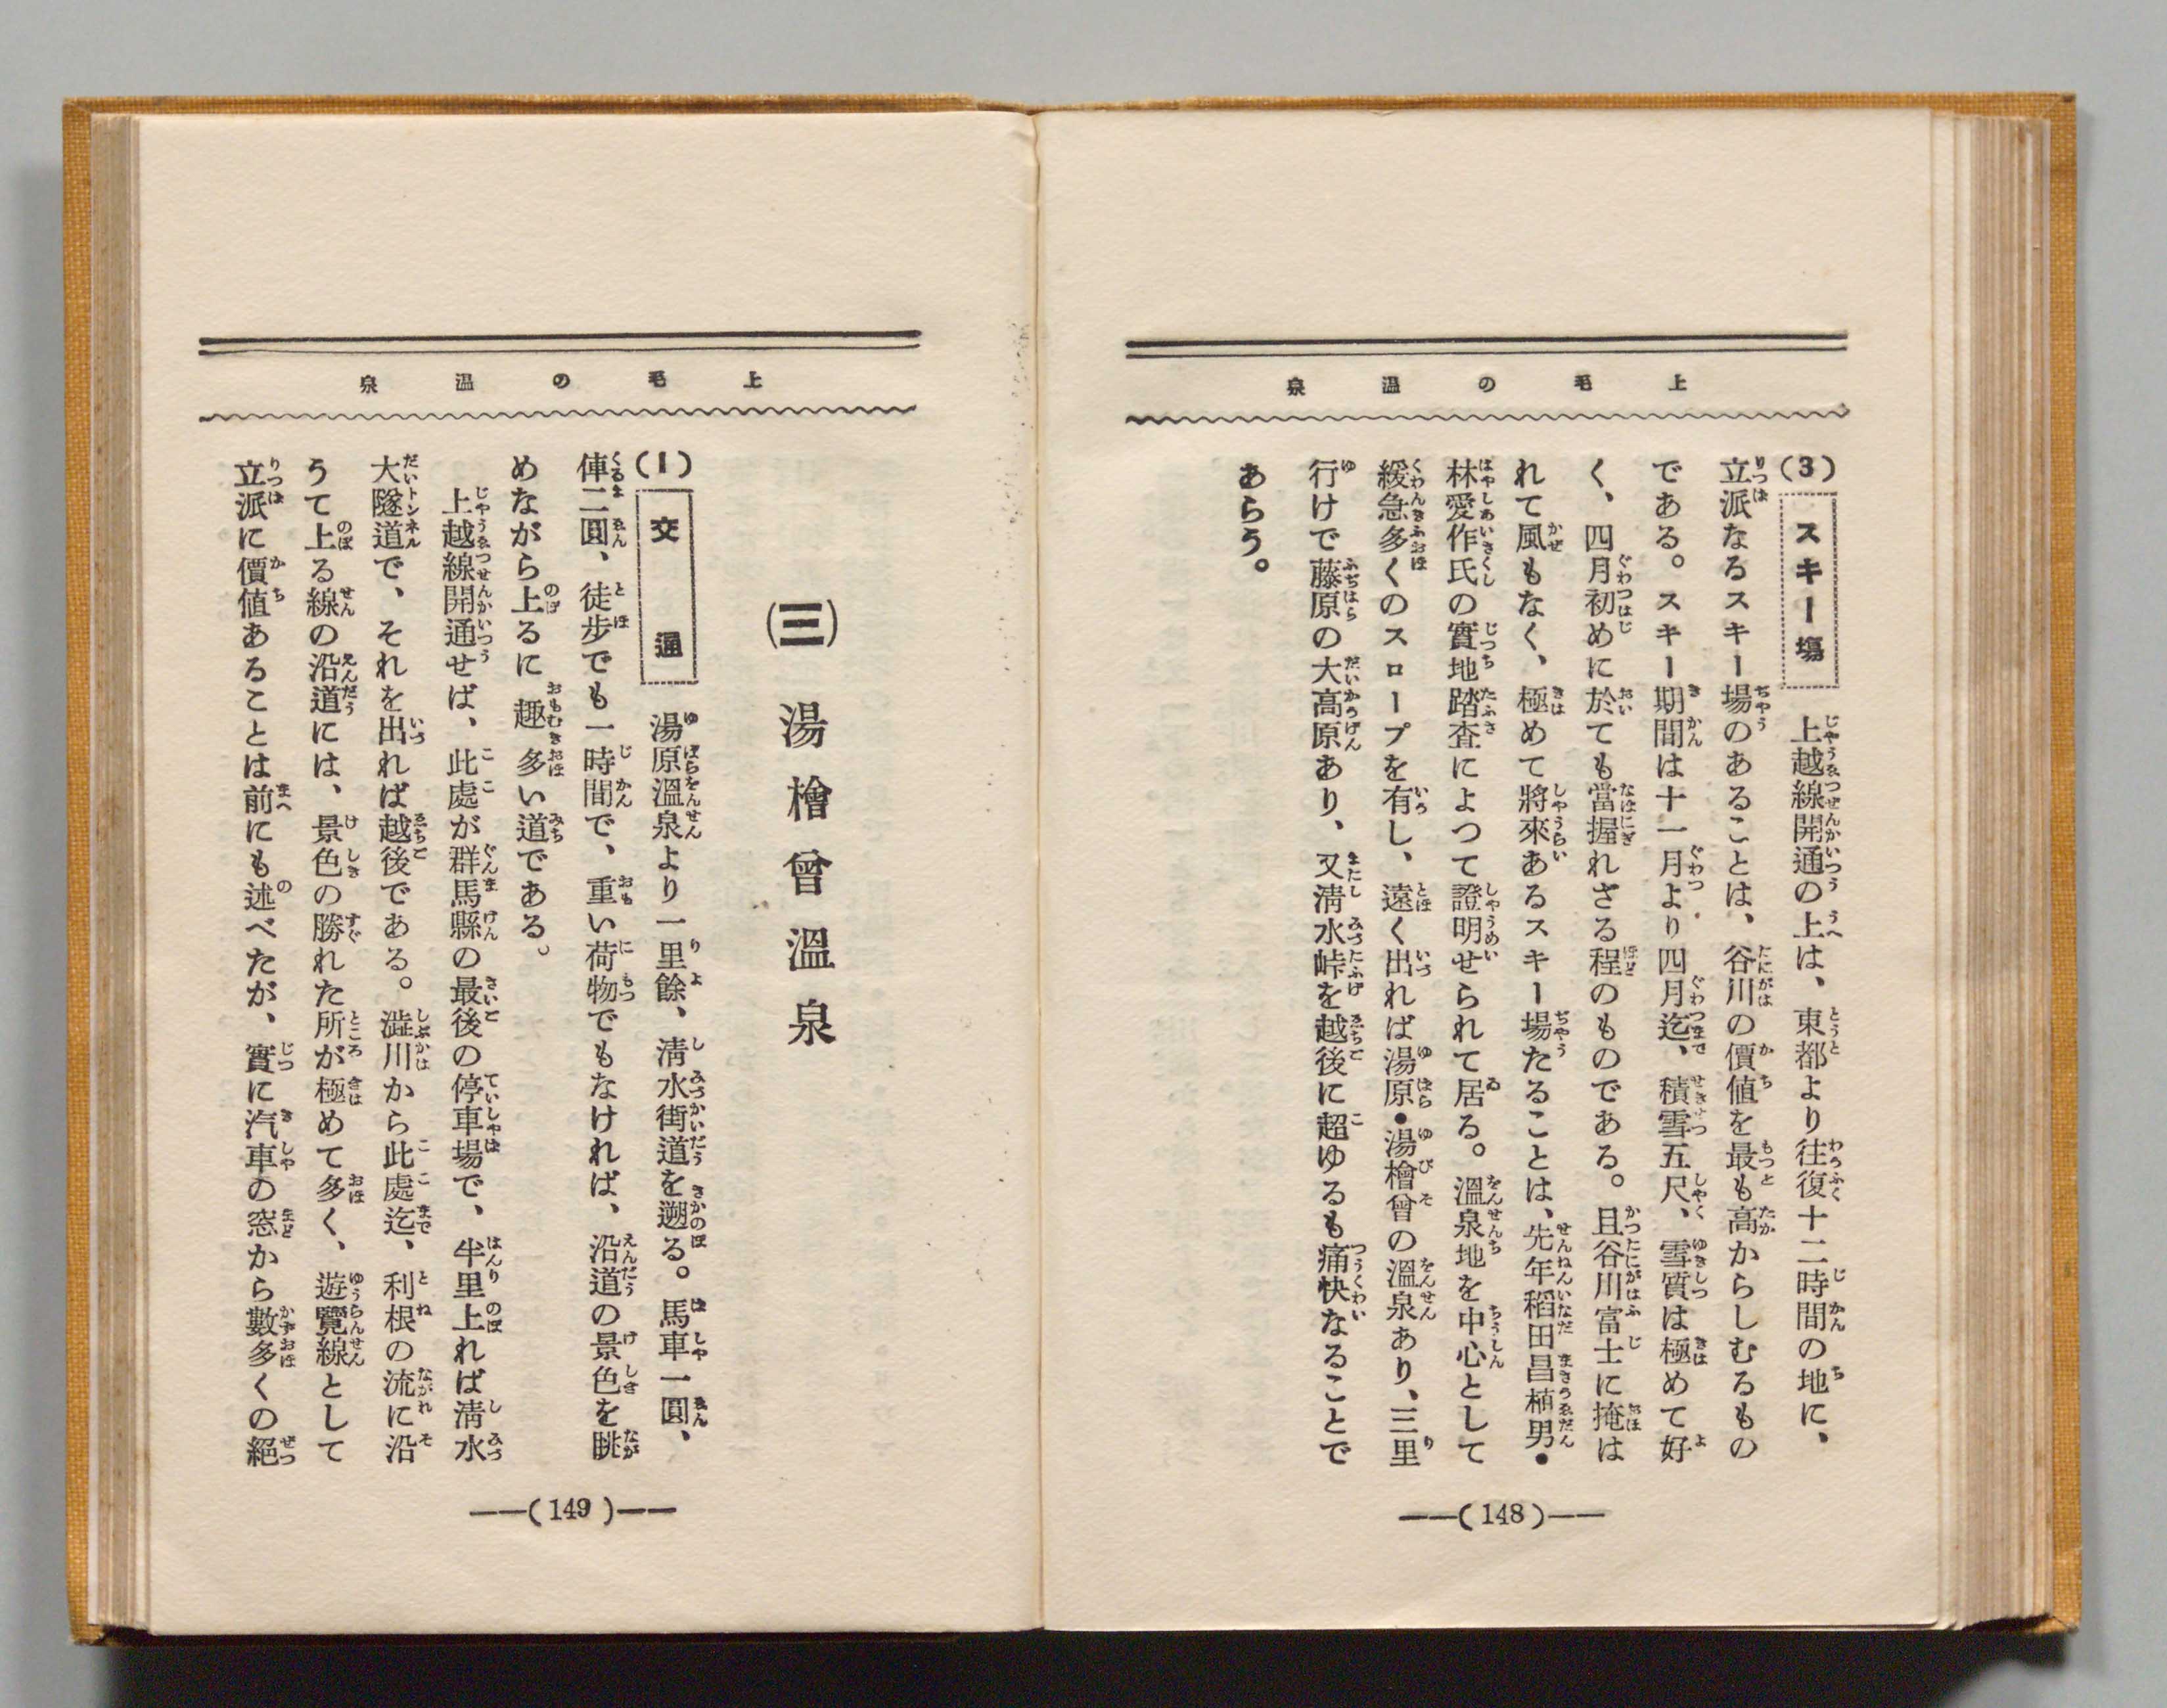 上毛の温泉
(3) スキー塲 上越線開通の上は、東都より往復十二時間の地に、
立派なるスキー場のあることは、谷川の價値を最も高からしむるもの
である。スキー期間は十一月より四月迄、積雪五尺、雪質は極めて好
く、四月初めに於ても當握れざる程のものである。且谷川富士に掩は
れて風もなく、極めて將來あるスキー場たることは、先年稻田昌植男・
林愛作氏の實地踏査によつて證明せられて居る。溫泉地を中心として
緩急多くのスロープを有し、遠く出れば湯原・湯檜曾の溫泉あり、三里
行けで藤原の大高原あり、又淸水峠を越後に超ゆるも痛快なることで
あらう。
——(148)——
上毛の温泉
(三) 湯檜曾溫泉
(1) 交通 湯原溫泉より一里餘、淸水街道を遡る。馬車一圓、
俥二圓、徒步でも一時間で、重い荷物でもなければ、沿道の景色を眺
めながら上るに趣多い道である。
上越線開通せば、此處が群馬縣の最後の停車場で、半里上れば淸水
大隧道で、それを出れば越後である。澁川から此處迄、利根の流に沿
うて上る線の沿道には、景色の勝れた所が極めて多く、遊覽線として
立派に價値あることは前にも述べたが、實に汽車の窓から數多くの絕
——(149)——